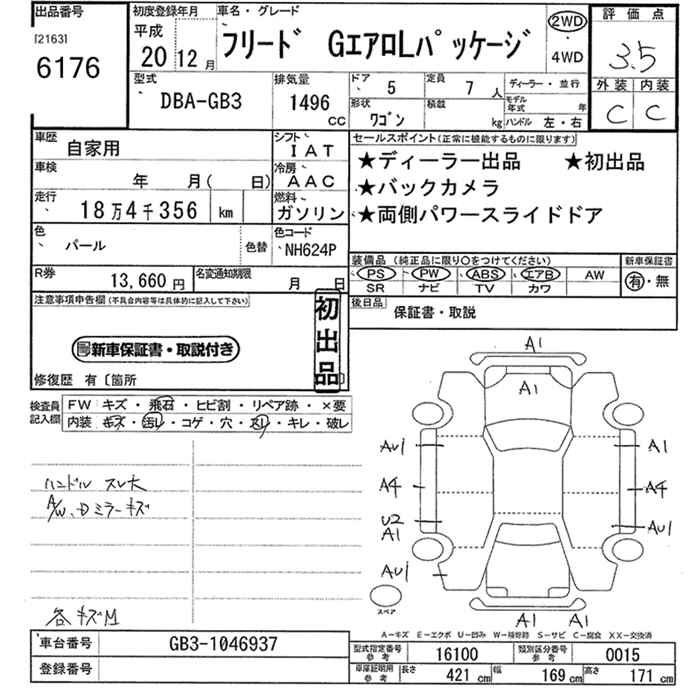 出品番号
[2163]
6176
初度登録年月
平成
20 12月
車名・グレード
フリード GエアロLパッケージ
2WD
4WD
評価点
3.5
外装 内装
C C
型式
DBA-GB3
排気量
1496
CC
ドア 5
定員 7 人
ディーラー・並行
形状 ワゴン
積載 kg
モデル年式 年
ハンドル 左・右
車歴 自家用
シフト IAT
車検 年 月( 日)
冷房 AAC
走行 18万4千356 km
燃料 ガソリン
色 パール
色替
色コード NH624P
R券 13,660円
名変通知期限 月 日
セールスポイント(正常に機能するものに限ります)
★ディーラー出品 ★初出品
★バックカメラ
★両側パワースライドドア
装備品 (純正品に限り○をつけてください)
新車保証書
PS PW ABS エアB AW
SR ナビ TV カワ
有・無
後日品
保証書・取説
注意事項申告欄(不具合内容等は具体的に記入して下さい)
新車保証書・取説付き
初出品
修復歴 有〔箇所
検査員記入欄
FW キズ・飛石・ヒビ割・リペア跡・×要
内装 キズ・汚レ・コゲ・穴・スレ・キレ・破レ
ハンドル スレ大
A/W、Dミラーキズ
各キズM
A1
A1
AU1
A1
A4
A4
U2
A1
AU1
AU1
スペア
A1
A1
A－キズ E－エクボ U－凹み W－補修跡 S－サビ C－腐食 XX－交換済
車台番号 GB3-1046937
登録番号
型式指定番号 参考 16100
類別区分番号 参考 0015
車庫証明用 参考
長さ 421 cm
幅 169 cm
高さ 171 cm